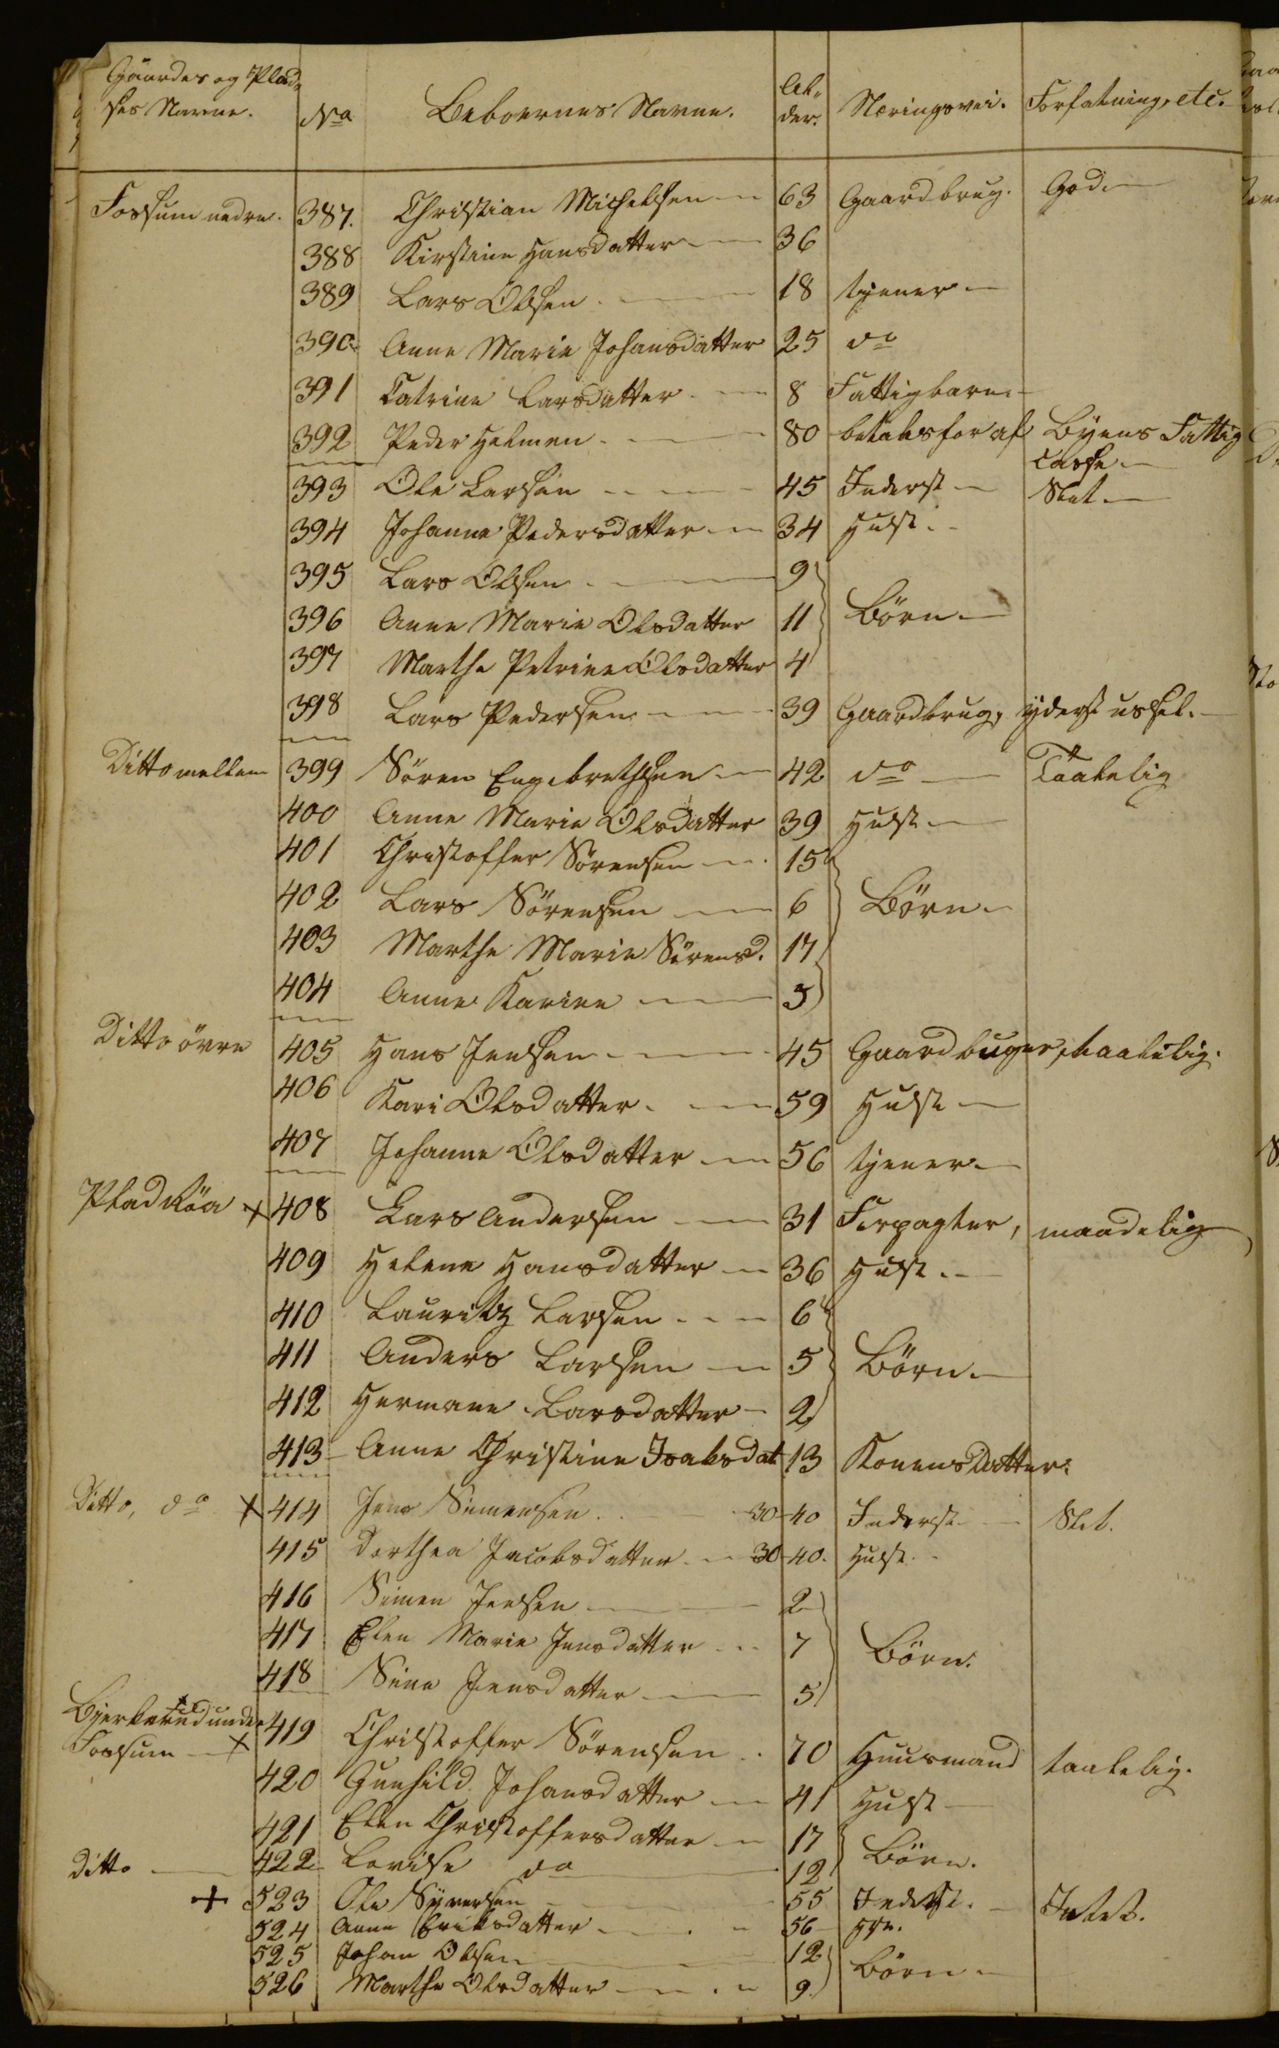 Gaardes og Plad-
ses Navne. No Beboernes Navne. Al-
der. Næringsvei. Forfatning, etc.
Fossum nedre. 387. Christian Michelsen 63 Gaardbrug. God.
388 Kirstine Hansdatter 36
389 Lars Olsen 18 tjener
390. Anne Marie Johansdatter 25 do
391 Catrine Larsdatter 8 Fattigbarn
392 Peder Holmen 80 betales for af Byens Fattig
Casse
393 Ole Larsen 45 Inderst Slet
394 Johanne Pedersdatter 34 Hust.
395 Lars Olsen 9
396 Anne Marie Olsdatter 11 Børn
397 Marthe Petrine Olsdatter 4
398 Lars Pedersen 39 Gaardbrug, yderst ussel.
Ditto mellem 399 Søren Engebrethsen 42 do Taalelig
400 Anne Marie Olsdatter 39 Hust
401 Christoffer Sørensen 15
402 Lars Sørensen 6 Børn
403 Marthe Marie Sørensd. 17
404 Anne Karine 3
Ditto øvre 405 Hans Jensen 45 Gaardbuger, taalelig.
406 Kari Olsdatter 59 Hust
407 Johanne Olsdatter 56 tjener
Plad Röa + 408 Lars Andersen 31 Forpagter, maadelig
409 Helene Hansdatter 36 Hust.
410 Lauritz Larsen 6
411 Anders Larsen 5 Børn
412 Hermane Larsdatter 2
413 Anne Christine Isaksdat 13 Konens Datter.
Ditto, do + 414 Jens Simensen 30 40 Inderst Slet.
415 Dorthea Jacobsdatter 30 40. Hust.
416 Simen Jensen 2
417 Elen Marie Jensdatter 7 Børn.
418 Sina Jensdatter 5
Bjerkerud under 419 Christoffer Sørensen 70 Huusmand taalelig.
Fossum +
420 Gunhild Johansdatter 41 Hust
421 Elen Christoffersdatter 17 Børn.
422 Lovise do 12
Ditto
+ 523 Ole Syversen 55 Inderst. Intet.
524 Anne Eriksdatter 56
525 Johan Olsen 12 Børn
526 Marthe Olsdatter 9